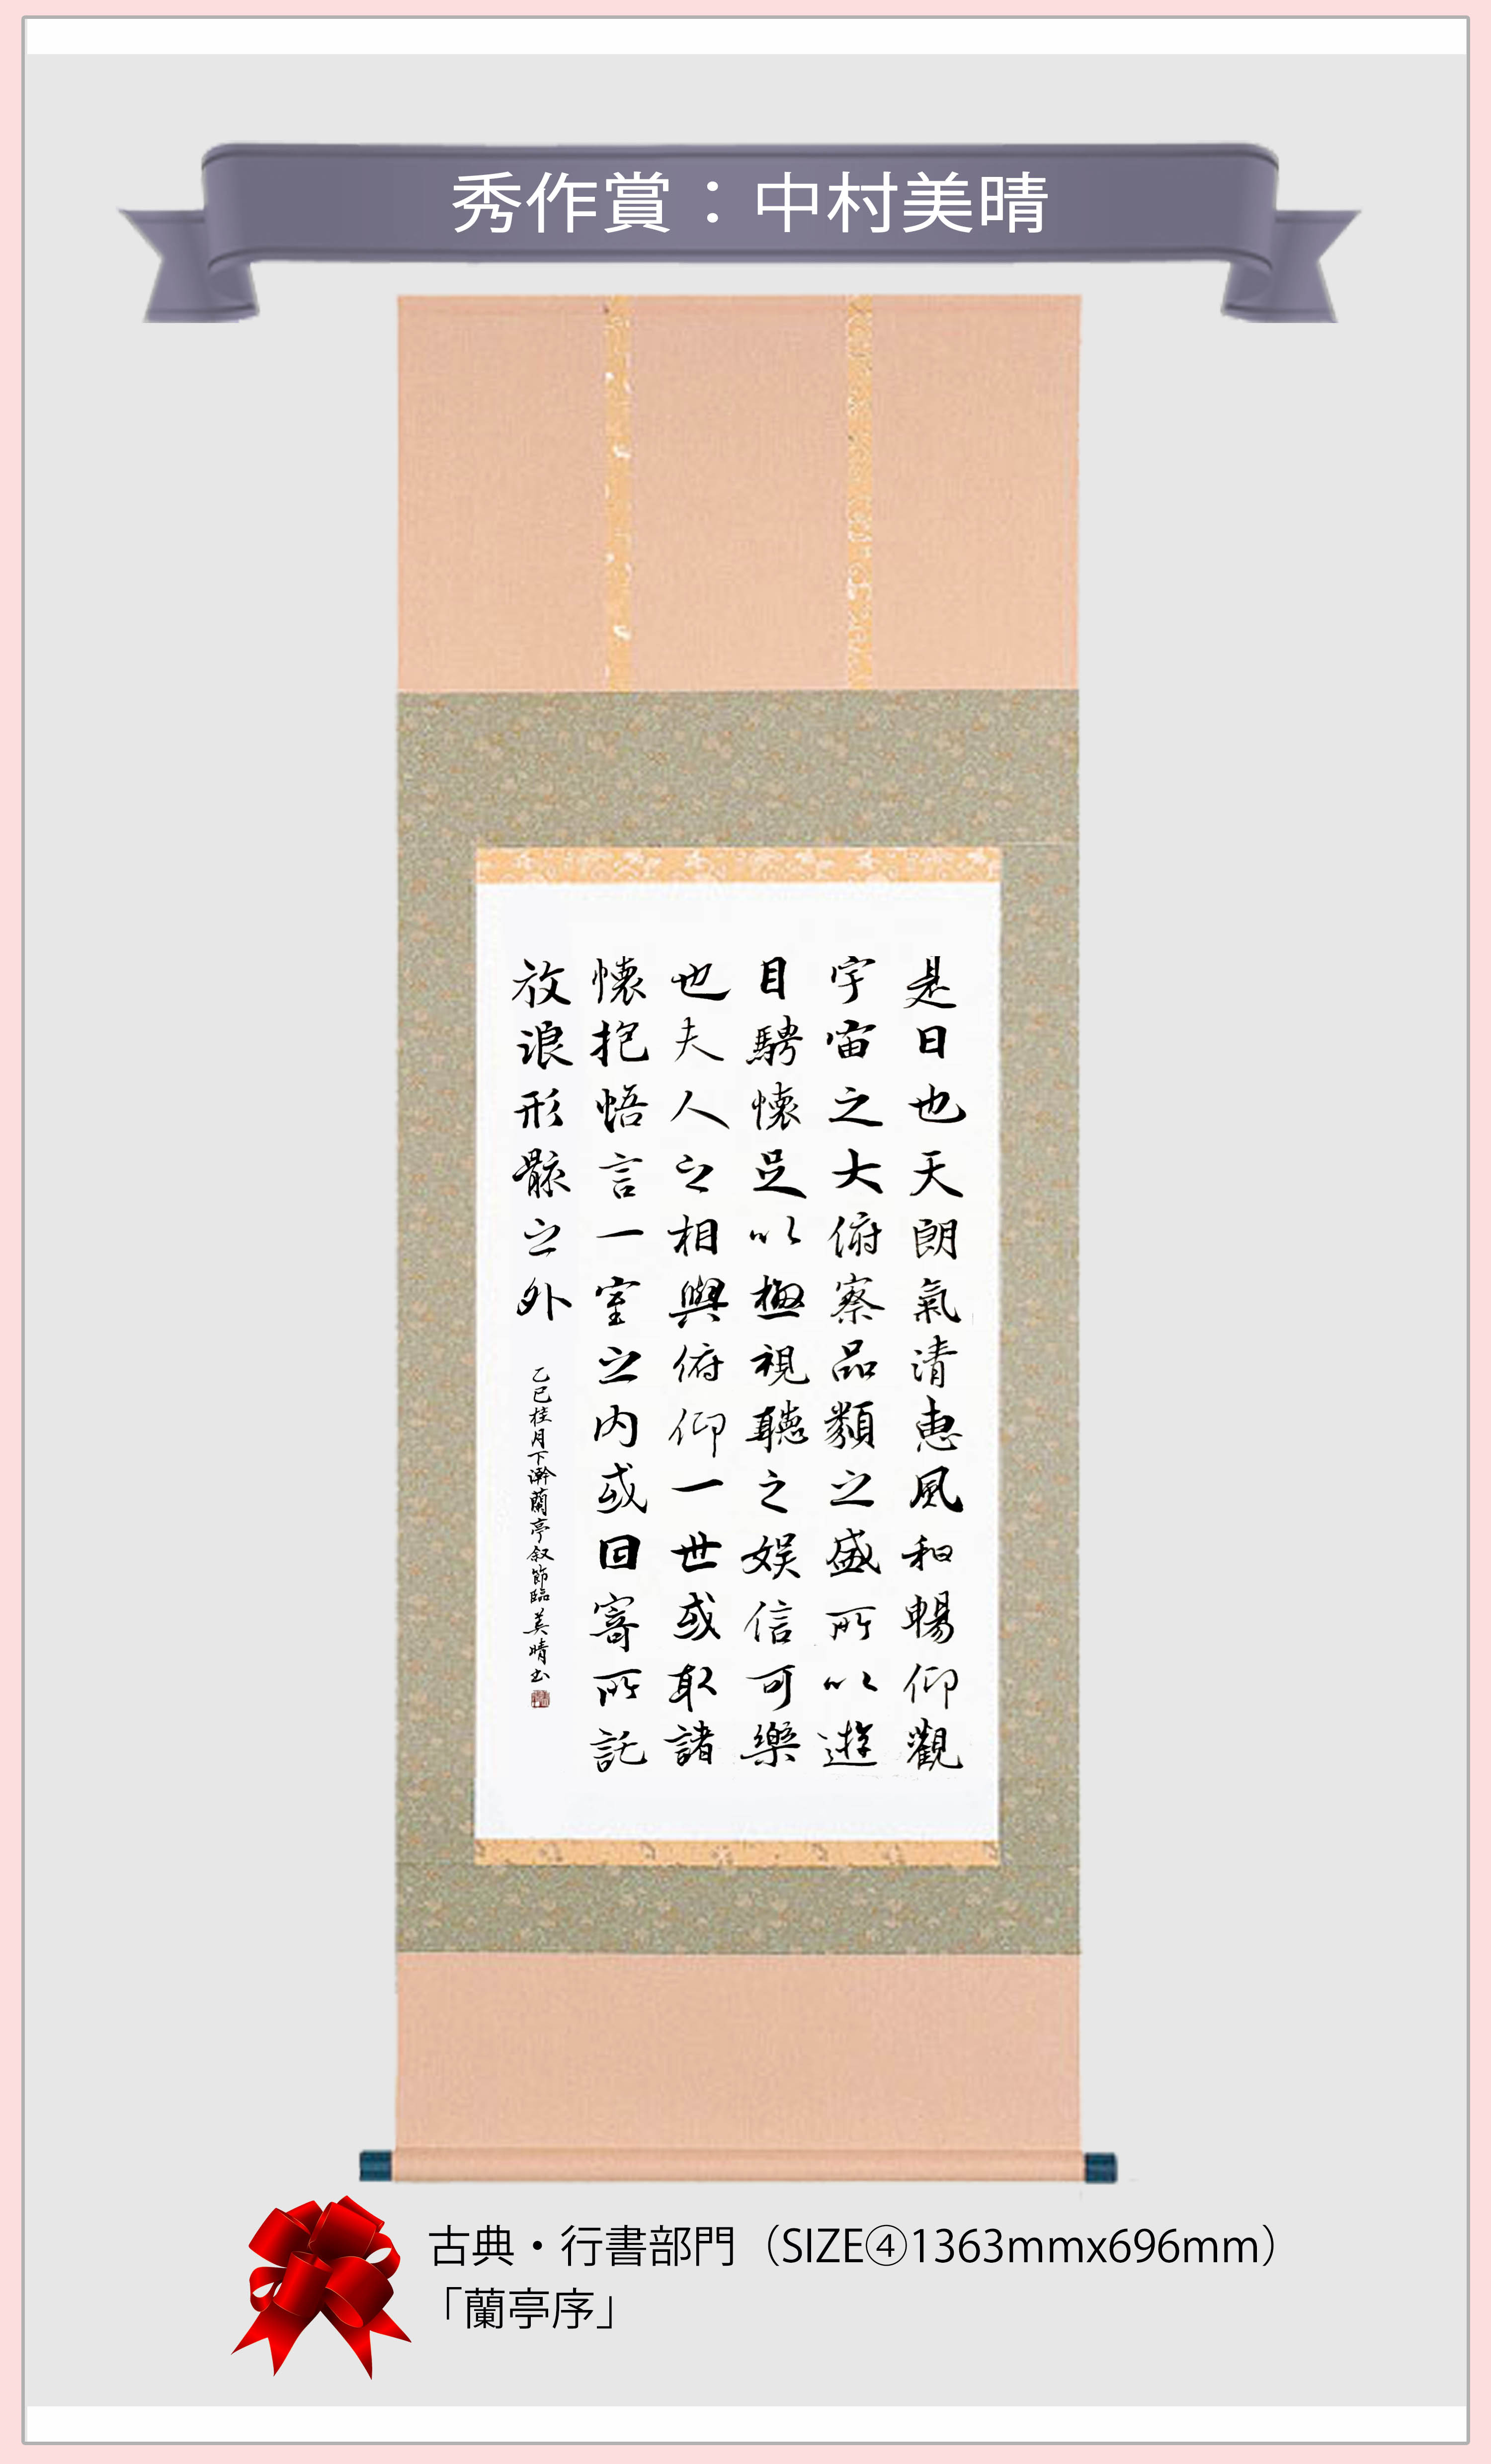 秀作賞：中村美晴
是日也天朗氣清恵風和暢仰觀
宇宙之大俯察品類之盛所以遊
目騁懐足以極視聴之娯信可樂
也夫人之相與俯仰一世或取諸
懐抱悟言一室之内或因寄所託
放浪形骸之外
乙巳桂月下澣蘭亭叙節臨美晴書
古典・行書部門（SIZE④1363mmx696mm）
「蘭亭序」